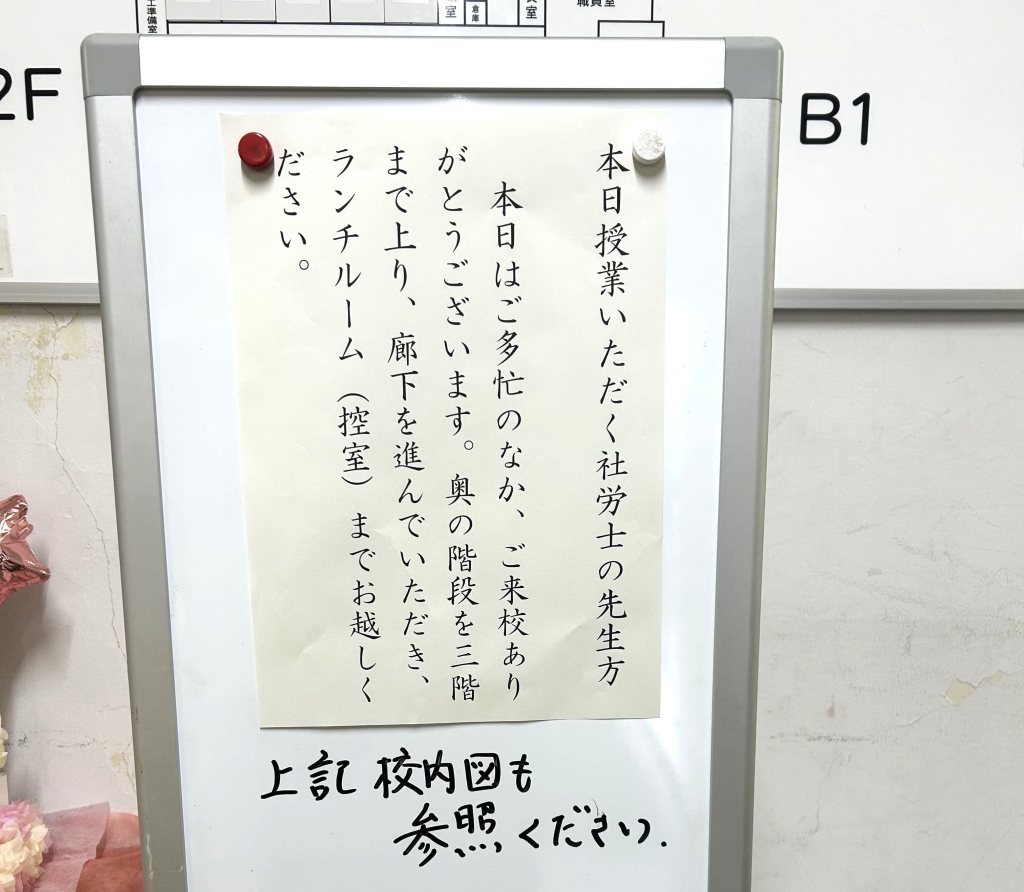 工準備室
倉庫
職員室
2F
B1
本日授業いただく社労士の先生方
本日はご多忙のなか、ご来校あり
がとうございます。奥の階段を三階
まで上り、廊下を進んでいただき、
ランチルーム（控室）までお越しく
ださい。
上記校内図も
参照ください.